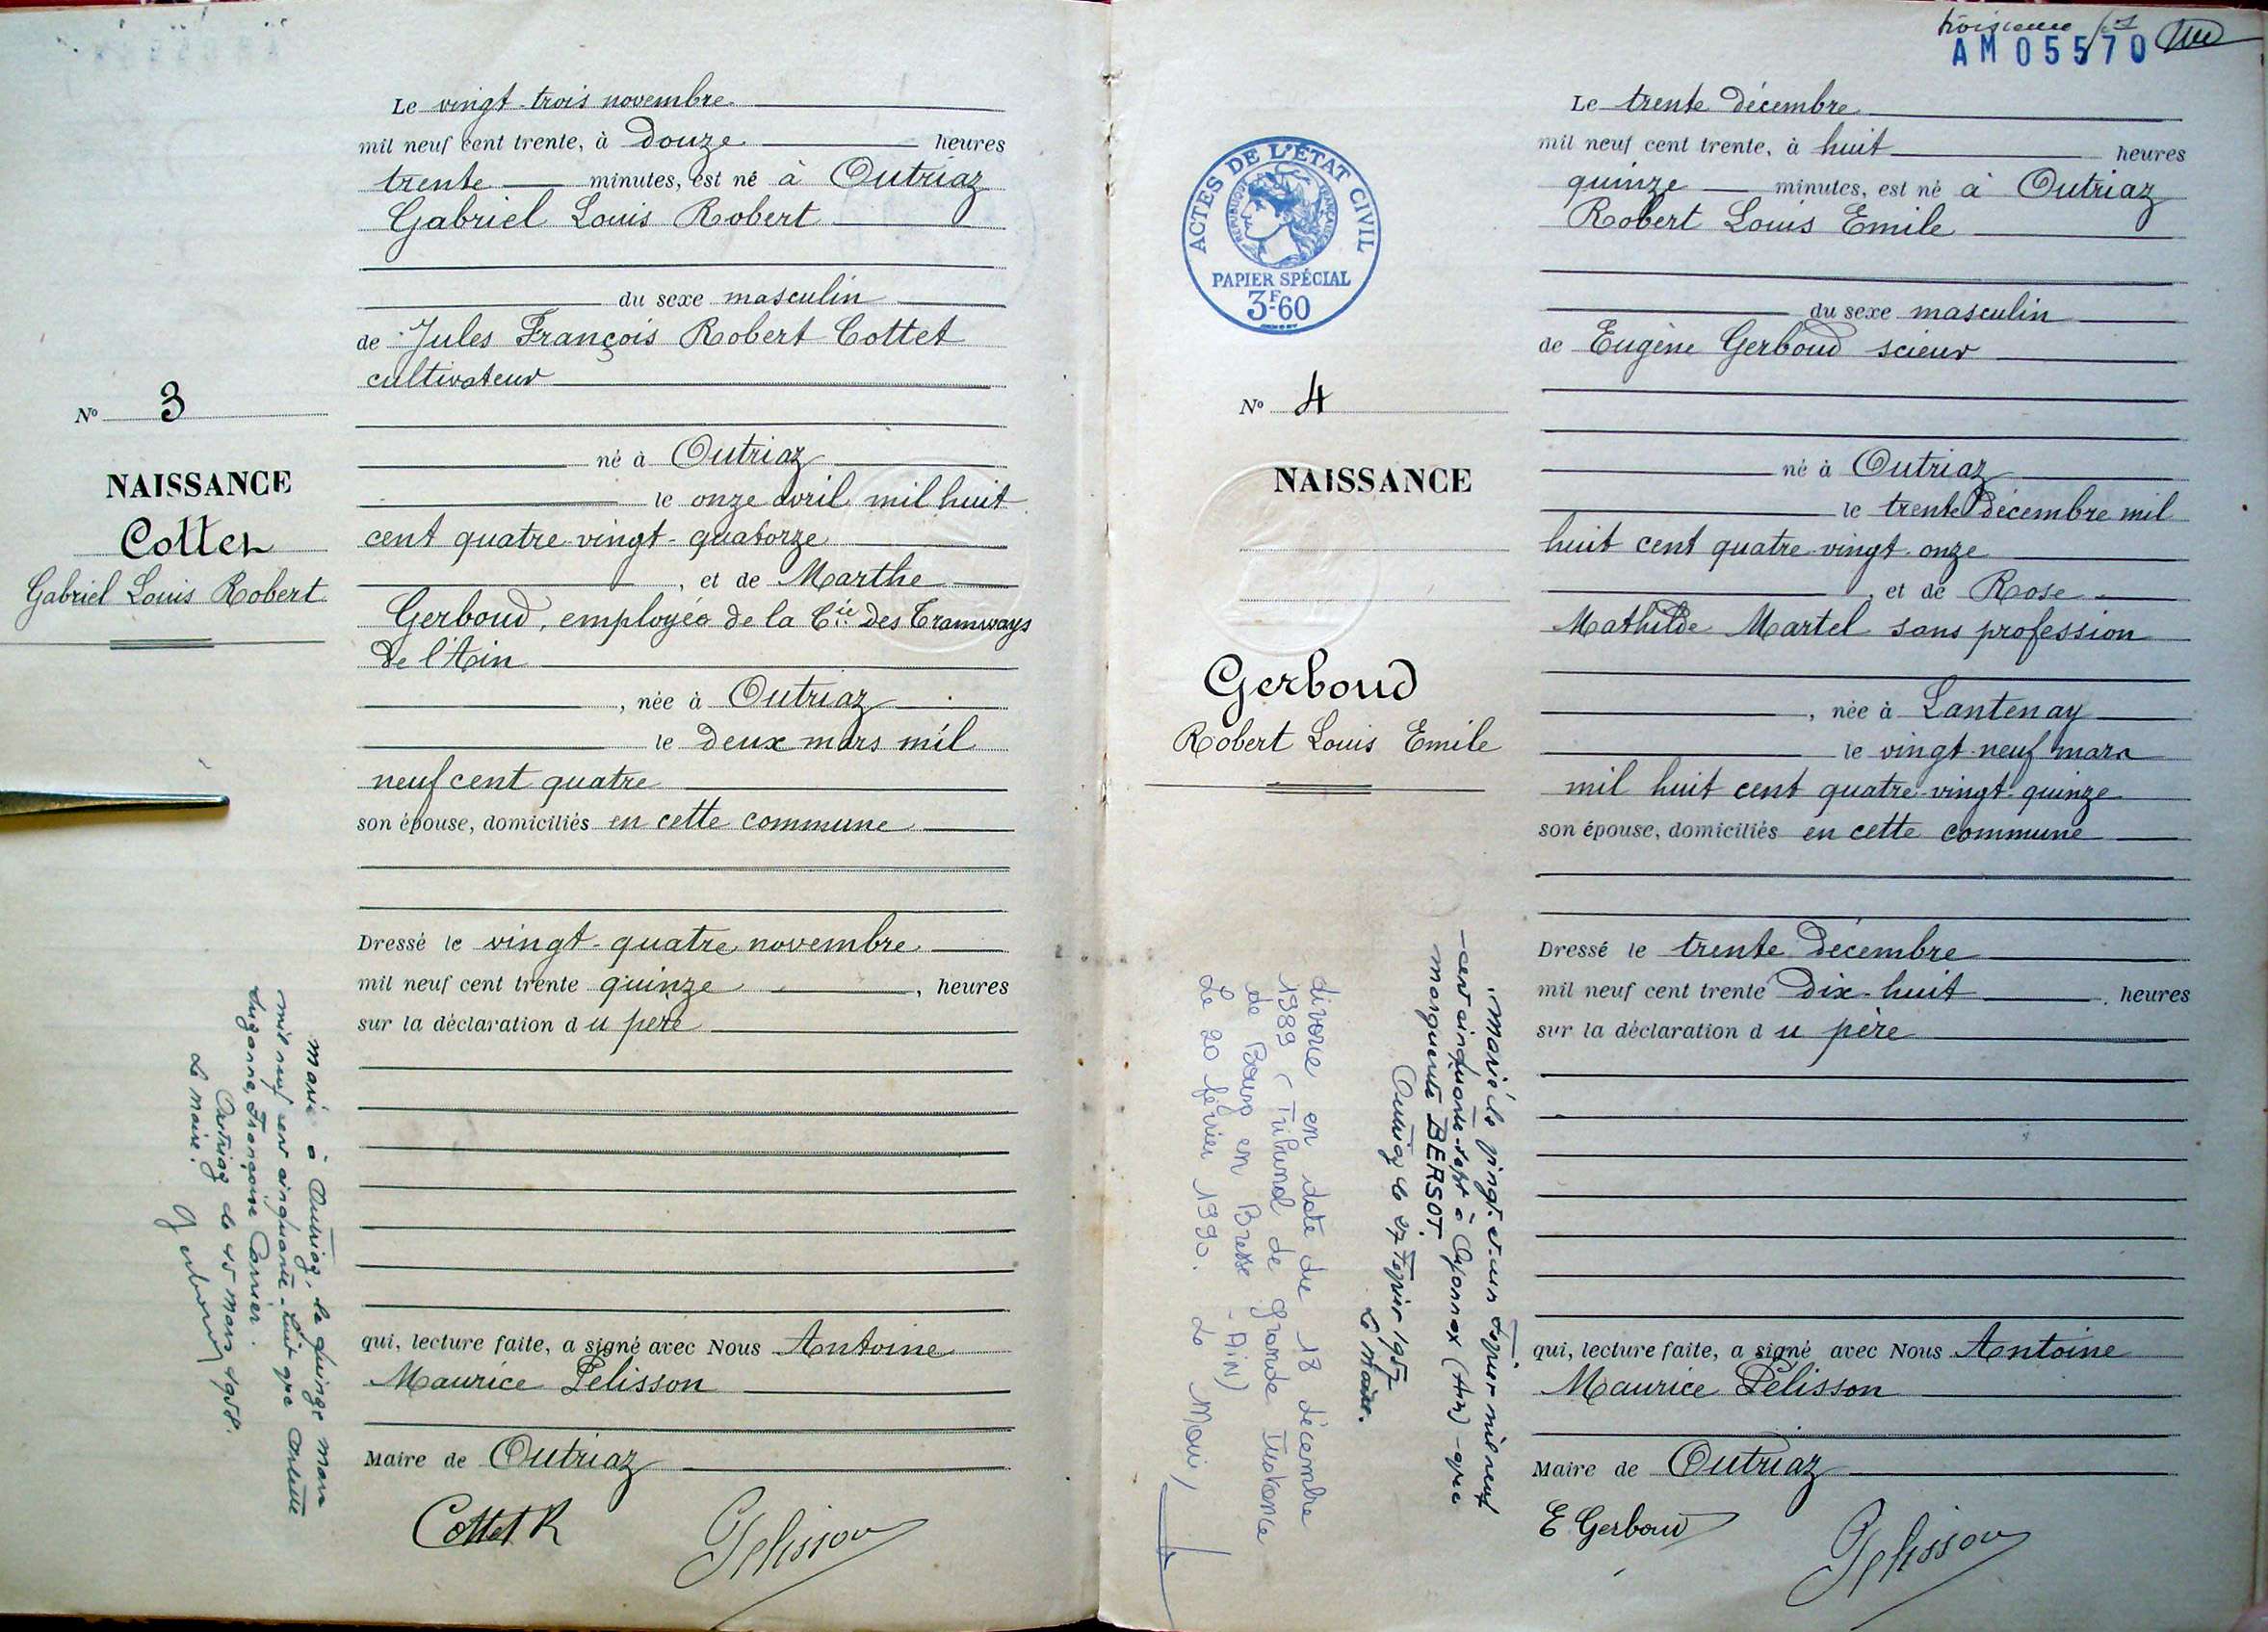 Le vingt-trois novembre
mil neuf cent trente, à douze heures
trente minutes, est né à Outriaz
Gabriel Louis Robert
du sexe masculin
de Jules François Robert Cottet
cultivateur
né à Outriaz
le onze avril mil huit
cent quatre-vingt-quatorze
, et de Marthe
Gerboud, employée de la Cie des Tramways
de l'Ain
, née à Outriaz
le deux mars mil
neuf cent quatre
son épouse, domiciliés en cette commune
Dressé le vingt-quatre novembre
mil neuf cent trente quinze , heures
sur la déclaration du père
qui, lecture faite, a signé avec Nous Antoine
Maurice Pélisson
Maire de Outriaz
Cottet R
Pelisson
No 3
NAISSANCE
Cottet
Gabriel Louis Robert
marié à Outriaz, le quinze mars
mil neuf cent cinquante-huit avec
Françoise
Outriaz le 15 mars 1958.
Le maire.
Gerboud
troisième
AM05570
ACTES DE L'ÉTAT CIVIL
RÉPUBLIQUE FRANÇAISE
PAPIER SPÉCIAL
3F60
No 4
NAISSANCE
Gerboud
Robert Louis Emile
Marié le vingt-et-un février mil neuf
-cent cinquante-sept à Oyonnax (Ain) avec
Marguerite BERSOT.
Outriaz le 27 Février 1957
Le Maire.
divorce en date du 18 décembre
1989 (Tribunal de Grande Instance
de Bourg en Bresse - AIN)
Le 20 février 1990. Le Maire,
Le trente décembre
mil neuf cent trente, à huit heures
quinze minutes, est né à Outriaz
Robert Louis Emile
du sexe masculin
de Eugène Gerboud scieur
né à Outriaz
le trente décembre mil
huit cent quatre-vingt-onze
, et de Rose
Mathilde Martel sans profession
, née à Lantenay
le vingt-neuf mars
mil huit cent quatre-vingt-quinze
son épouse, domiciliés en cette commune
Dressé le trente décembre
mil neuf cent trente dix-huit , heures
sur la déclaration du père
qui, lecture faite, a signé avec Nous Antoine
Maurice Pélisson
Maire de Outriaz
E Gerboud
Pelisson